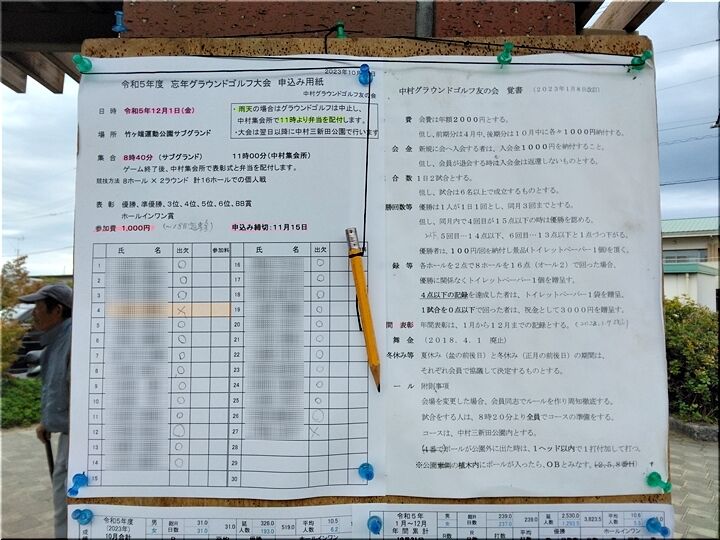 2023年10月
令和5年度 忘年グラウンドゴルフ大会 申込み用紙
中村グラウンドゴルフ友の会
日 時 令和5年12月1日(金)
・雨天の場合はグラウンドゴルフは中止し、
中村集会所で11時より弁当を配付します。
・大会は翌日以降に中村三新田公園で行います
場 所 竹ヶ端運動公園サブグランド
集 合 8時40分 (サブグランド) 11時00分(中村集会所)
ゲーム終了後、中村集会所で表彰式と弁当を配付します。
競技方法 8ホール × 2ラウンド 計16ホールでの個人戦
表 彰 優勝、準優勝、3位、4位、5位、6位、BB賞
ホールインワン賞
参加費 1,000円 申込み締切：11月15日
氏 名 出欠 参加料 氏 名 出欠
1 16
2 17
3 18
4 19
5 20
6 21
7 22
8 23
9 24
10 25
11 26
12 27
13 28
14 29
15 30
中村グラウンドゴルフ友の会 覚書 (2023年1月8日改訂)
費 会費は年額2000円とする。
但し、前期分は4月中、後期分は10月中に各々1000円納付する。
会 金 新規に会へ入会する者は、入会金1000円を納付すること。
但し、会員が退会する時は入会金は返還しないものとする。
合 数 1日2試合とする。
但し、試合は6名以上で成立するものとする。
勝回数等 優勝は1人が1日1回とし、同月3回までとする。
但し、同月内で4回目が15点以下の時は優勝を認める。
5回目…14点以下、6回目…13点以下と1点づつ下がる。
優勝者は、100円/回を納付し景品(トイレットペーパー1個)を頂く。
録 等 各ホールを2点で8ホールを16点(オール2)で回った場合、
優勝に関係なくトイレットペーパー1個を贈呈す。
4点以下の記録を達成した者は、トイレットペーパー1袋を贈呈。
1試合を0点以下で回った者は、祝金として3000円を贈呈す。
間 表彰 年間表彰は、1月から12月までの記録とする。
舞 金 (2018.4.1 廃止)
冬休み等 夏休み(盆の前後日)と冬休み(正月の前後日)の期間は、
それぞれ会員で協議して決定するものとする。
ール 附則事項
会場を変更した場合、会員同志でルールを作り周知徹底する。
試合をする人は、8時20分より全員でコースの準備をする。
コースは、中村三新田公園内とする。
(4番で)ボールが公園外に出た時は、1ヘッド以内で1打付加して打つ。
※公園東側の植木内にボールが入ったら、OBとみなす。(2,5,8番H)
令和5年度
(2023年)
10月合計
男 総R 31.0 延 326.0 519.0 平均 10.5
女 日数 31.0 人数 193.0 人数 6.2
令和5年
1月～12月
年間累計
男 総R 239.0 延 2,530.0 3,823.5 平均 10.6
女 日数 237.0 人数 1,293.5
優勝 ホールインワン